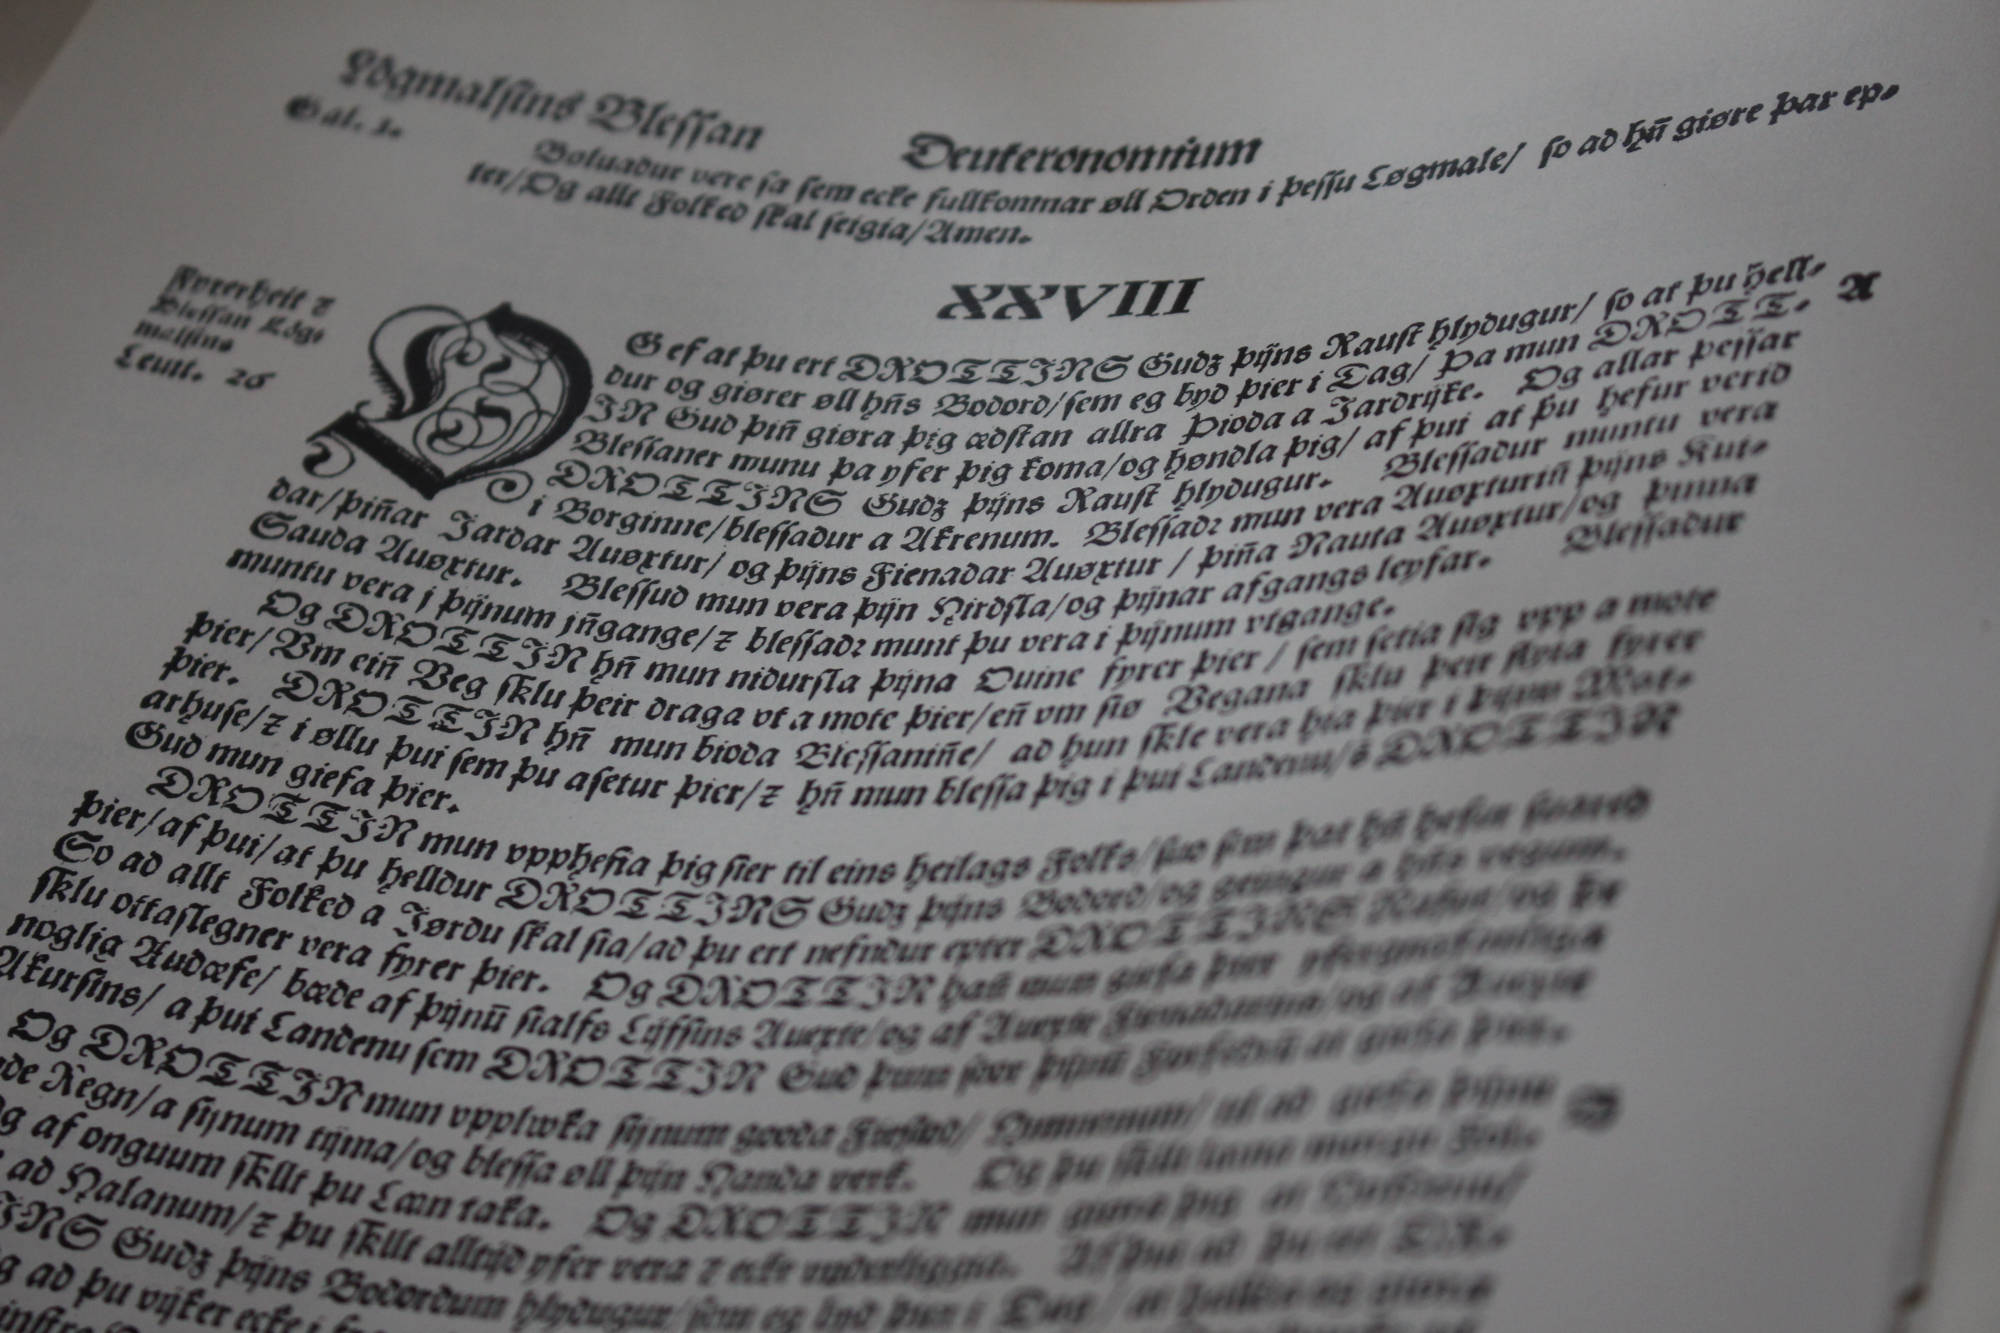 Løgmalsins Blessan
Deuteronomium
Gal. 3.
Boluadur vere sa sem ecke fullkomnar øll Orden i þessu Løgmale/ so ad hn̄ giøre þar ep-
ter/Og allt Folked skal seigia/Amen.
XXVIII
Fyrerheit ꝛ
Blessan Løg-
malsins
Leuit. 26
OG ef at þu ert DROTTINS Gudz þijns Raust hlydugur/ so at þu hell-
A
dur og giører øll hn̄s Bodord/sem eg byd þier i Dag/ Þa mun DROTT-
IN Gud þin̄ giøra þig ædstan allra Þioda a Jardrijke. Og allar þessar
Blessaner munu þa yfer þig koma/og høndla þig/ af þui at þu hefur verid
DROTTINS Gudz þijns Raust hlydugur. Blessadur muntu vera
i Borginne/blessadur a Akrenum. Blessadꝛ mun vera Auøxturin̄ þijns Kut-
dar/þin̄ar Jardar Auøxtur/ og þijns Fienadar Auøxtur / þin̄a Nauta Auøxtur/og þinna
Sauda Auøxtur. Blessud mun vera þijn Hirdsla/og þijnar afgangs leyfar. Blessadur
muntu vera j þijnum jn̄gange/ꝛ blessadꝛ munt þu vera i þijnum vtgange.
Og DROTTIN hn̄ mun nidursla þijna Ouine fyrer þier / sem setia sig vpp a mote
þier/ Vm ein̄ Veg sklu þeir draga vt a mote þier/en̄ vm siø Vegana sklu þeir flyia fyrer
þier. DROTTIN hn̄ mun bioda Blessanin̄e/ ad hun skle vera hia þier i þijnu Mat-
arhuse/ꝛ i øllu þui sem þu asetur þier/ꝛ hn̄ mun blessa þig i þui Landenu/s̄ DROTTIN
Gud mun giefa þier.
DROTTIN mun vpphefia þig sier til eins heilags Folks/ so sem þat hn̄ hefur suared
þier/af þui/at þu helldur DROTTINS Gudz þijns Bodord/og geingur a hn̄s vegum.
So ad allt Folked a Jørdu skal sia/ad þu ert nefndur epter DROTTINS Nafne/og þr
sklu ottaslegner vera fyrer þier. Og DROTTIN han̄ mun giefa þier yfergnæfanliga
noglig Audæfe/ bæde af þijnū sialfs Lijfsins Auexte/og af Auexte Fienadarins/og af Auexte
Akursins/ a þui Landenu sem DROTTIN Gud þinn sor þijnū Forfedrū at giefa þier.
Og DROTTIN mun vpplwka sijnum gooda Fiesiod/ Himenenum/ til ad giefa þijnu
de Regn/a sijnum tijma/og blessa øll þijn Handa verk. Og þu skillt lana morgu Folke
g af onguum skllt þu Læn taka. Og DROTTIN mun giøra þig at Høfdenu/
ad Halanum/ꝛ þu skllt alltijd yfer vera ꝛ ecke vnderliggia. Af þui ad þu ert DR-
INS Gudz þijns Bodordum hlydugur/sem eg byd þier i Dag/ at
g ad þu vijker ecke i
instra